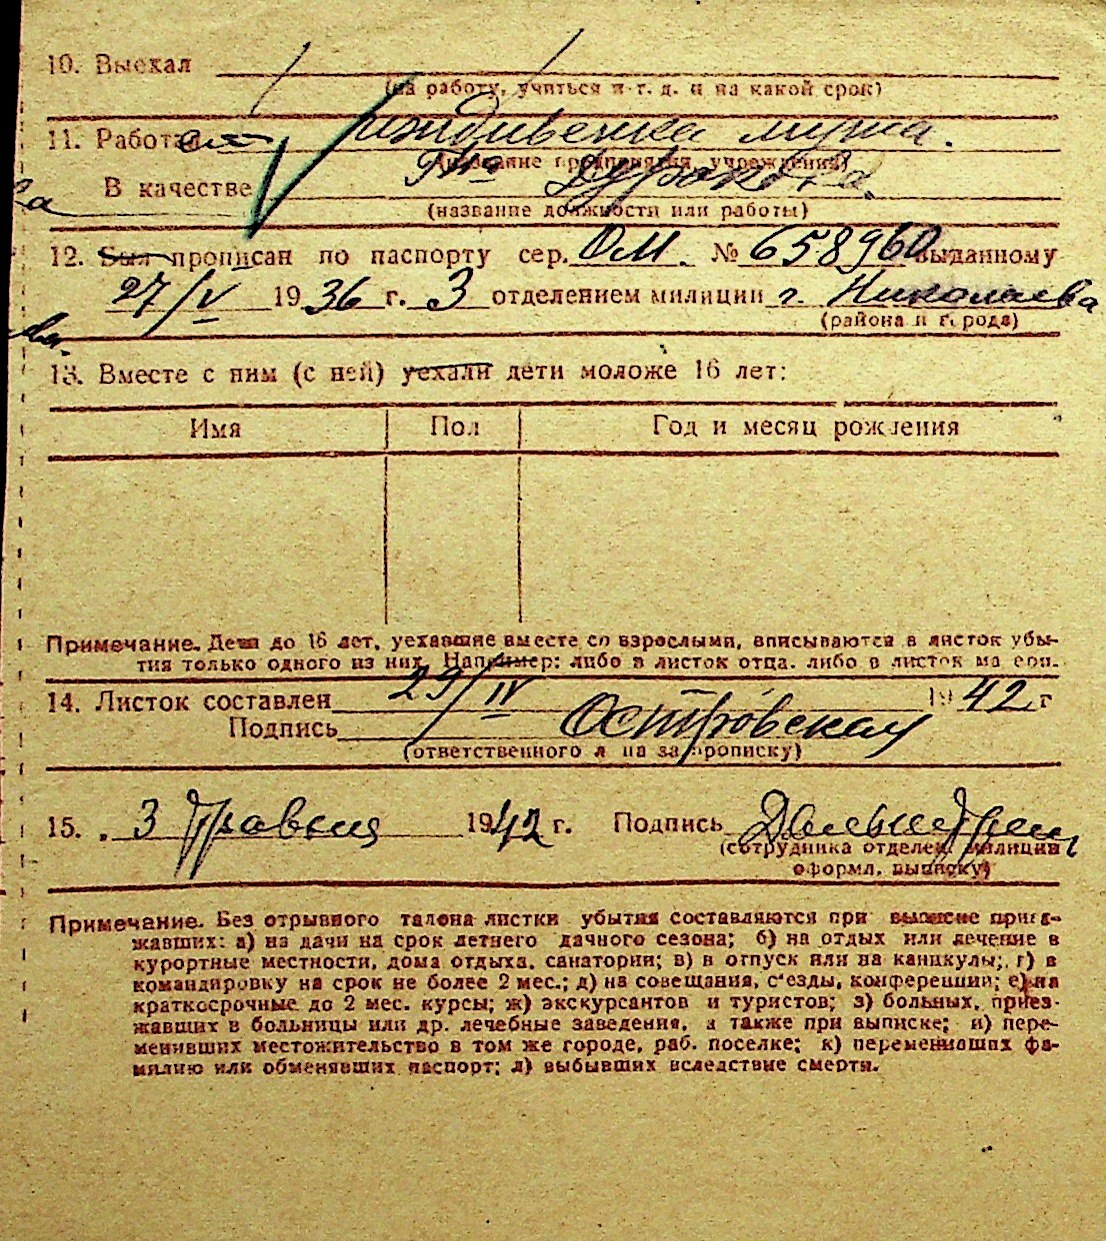 10. Выехал
(на работу, учиться и т. д. и на какой срок)
11. Работает иждивенка мужа.
(название предприятия, учреждения)
В качестве
(название должности или работы)
12. Был прописан по паспорту сер. ОМ. № 658960 выданному
27/V 1936 г. 3 отделением милиции г. Николаева
(района и города)
13. Вместе с ним (с ней) уехали дети моложе 16 лет:
Имя Пол Год и месяц рождения
Примечание. Дети до 16 лет, уехавшие вместе со взрослыми, вписываются в листок убы-
тия только одного из них. Например: либо в листок отца, либо в листок матери.
14. Листок составлен 29/IV 1942 г
Подпись Островская
(ответственного лица за прописку)
15. 3 травня 1942 г. Подпись
(сотрудника отделен. милиции
оформл. выписку)
Примечание. Без отрывного талона листки убытия составляются при выписке приез-
жавших: а) на дачи на срок летнего дачного сезона; б) на отдых или лечение в
курортные местности, дома отдыха, санатории; в) в отпуск или на каникулы; г) в
командировку на срок не более 2 мес.; д) на совещания, съезды, конференции; е) на
краткосрочные до 2 мес. курсы; ж) экскурсантов и туристов; з) больных, приез-
жавших в больницы или др. лечебные заведения, а также при выписке; и) пере-
менивших местожительство в том же городе, раб. поселке; к) переменивших фа-
милию или обменявших паспорт; л) выбывших вследствие смерти.